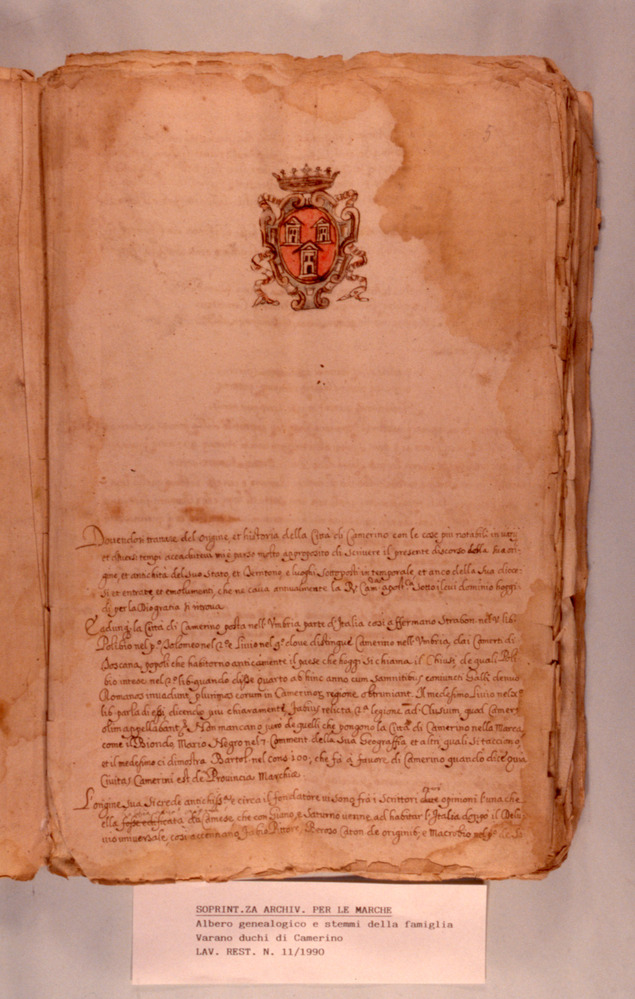 5
Dovendosi trattare del origine, et historia della Città di Camerino con le cose più notabili in varij
et diversi tempi accadutevi mi è parso molto a proposito di scrivere il presente discorso della sua ori:
gine, et antichità del suo stato, et Territorio, e luoghi sottoposti in temporale, et anco della sua dioce:
si et entrate, et emolumenti, che ne cava annualmente la R. Cam. apost. sotto il cui dominio hoggi:
di per la Dio gratia si ritrova.
È adunq. la Città di Camerino posta nell'Umbria parte d'Italia così affermano Strabon. nel lib.
Polibio nel p.º Tolomeo nel 2.º Livio nel 9.º dove distingue Camerino nell'Umbria, dai Camerti di
Toscana, popoli che habitorno anticamente il paese che hoggi si chiama il Chiusi, de quali Poli:
bio intese nel 2.º lib. quando disse quarto ab hinc anno cum Samnitibus coniuncti Galli denuo
Romanos invadunt, plurimos eorum in Camerinor. regione obtruncant. Il medesimo Livio nel
lib. parla di essi dicendo più chiaramente, Fabius relicta 2.ª legione ad Clusium, quod Camers
olim appellabant. Non mancano però de quelli che pongono la Città di Camerino nella Marca
come il Biondo, Mario Negro nel 7 Comment. della sua Geografia et altri quali si tacciono
et il medesimo ci dimostra Bartol. nel cons. 100, che fà à favore di Camerino quando dice quia
Civitas Camerini est de Provincia Marchiae.
L'origine sua si crede antichiss. e circa il fondatore vi sono frà i scrittori opinioni l'una che
ella fosse edificata da Camese che con Giano, e Saturno venne ad habitar l'Italia dopo il Delu
vio universale così accennano Fabio Pittor, Beroso Caton de originib, e Macrobio nel
SOPRINT.ZA ARCHIV. PER LE MARCHE
Albero genealogico e stemmi della famiglia
Varano duchi di Camerino
LAV. REST. N. 11/1990